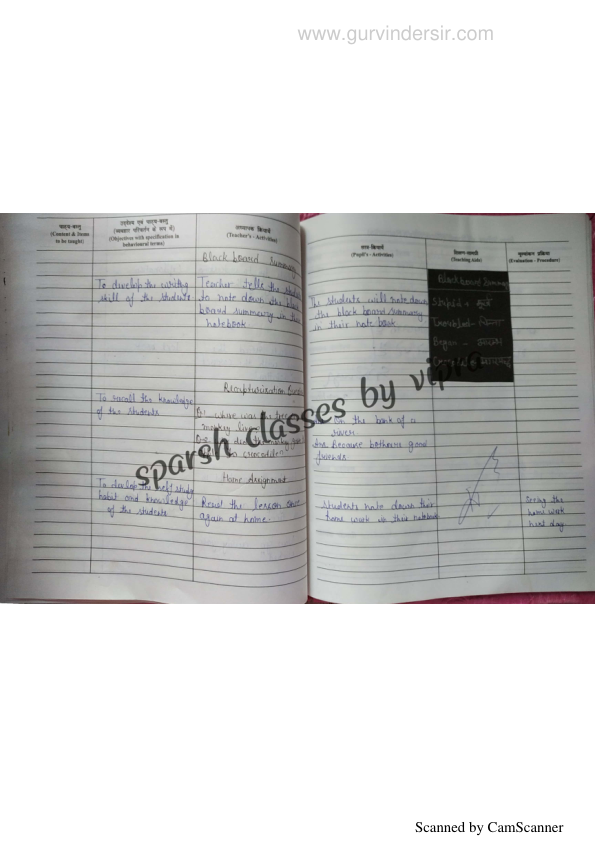 www.gurvindersir.com
पाठ्य-वस्तु
(Content & Items
to be taught)
उद्देश्य एवं पाठ्य-वस्तु
(व्यवहार परिवर्तन के रूप में)
(Objectives with specification in
behavioural terms)
(Teacher's - Activities)
Black board Summary
To develop the writing
skill of the students
Teacher tells the students
to note down the black
board summery in their
notebook
To recall the knowledge
of the students
where was the tree
monkey
crocodile
Home Assignment
To develop the self study
habit and knowledge
of the students
Read the lesson once
again at home.
(Pupil's - Activities)
(Teaching Aids)
मूल्यांकन प्रक्रिया
(Evaluation - Procedure)
Black board Summary
Stupid - मूर्ख
Troubled - चिन्ता
Began -
The students will note down
the black board summery
in their note book
on the bank of a
river
Ans. because both were good
friends
students note down their
home work in their notebook
Seeing the
home work
next day
sparsh classes by vipra
Scanned by CamScanner